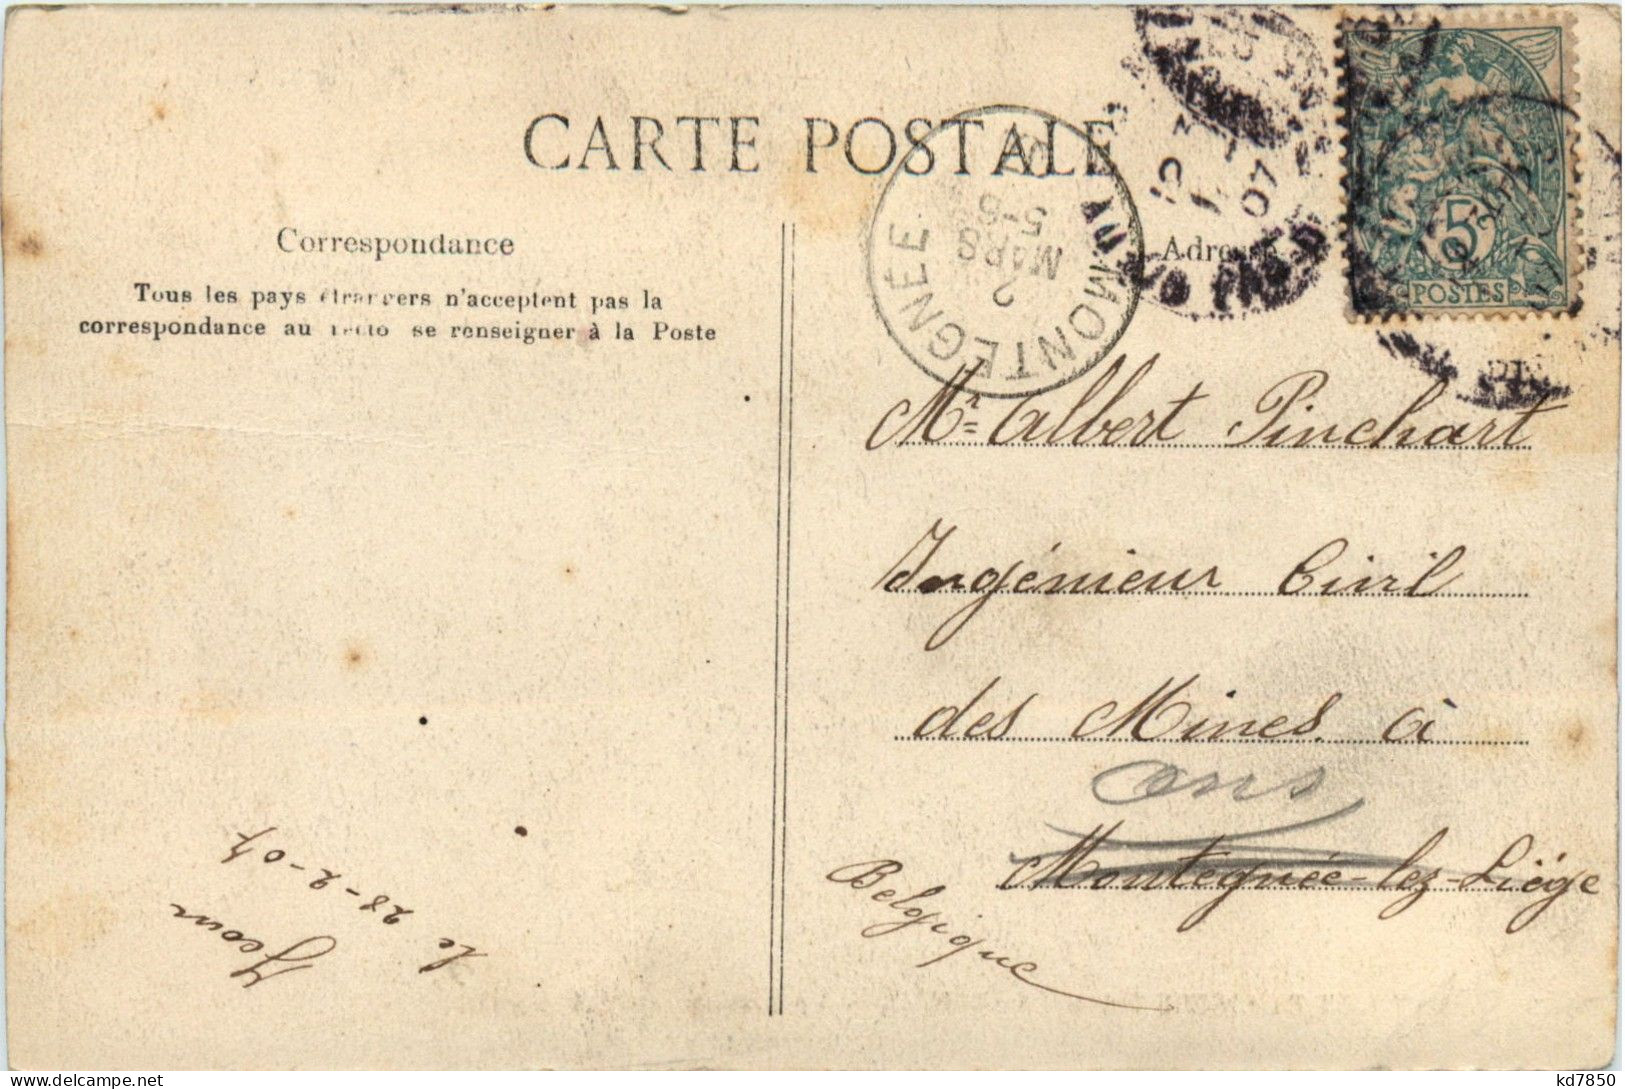 CARTE POSTALE
Correspondance
Tous les pays étrangers n'acceptent pas la
correspondance au recto se renseigner à la Poste
Adresse
MONTEGNÉE
2
MARS
5-6
07
10
07
5
POSTES
Mr Albert Pinchart
Ingénieur Civil
des Mines à
Ans
Montegnée-lez-Liége
Belgique
Le 28-2-07
kd7850